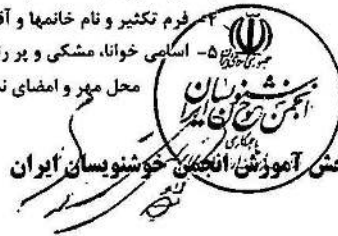 ۴- فرم تکثیر و نام خانمها و آق
۵- اسامی خوانا، مشکی و پر ر
محل مهر و امضای ن
جمهوری اسلامی ایران
انجمن خوشنویسان ایران
خش آموزش انجمن خوشنویسان ایران